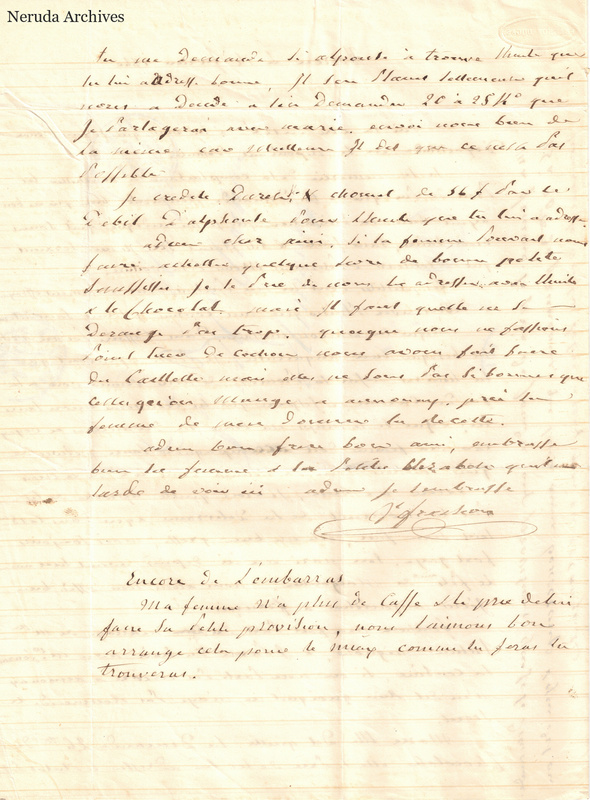 Neruda Archives
tu me demande si alphonse à trouvé l'huile que
tu lui adresse bonne, Il en Plaint tellement qu'il
nous a décidé a t'en Demander 20 à 25 Ko que
Je Partagerai avec marie. envoi nous bien de
la même car meilleure Il dit que ce n'est Pas
Possible
Je credite chomel de 56 f Par le
Debit D'alphonse Pour l'huile que tu lui a adressé
adieu cher ami, si ta femme Pouvait nous
faire achetter quelque livre de bonne petite
Saussisse Je te Prie de nous les adresser avec l'huile
& le chocolat. mais Il faut quelle ne Se
Derange Pas trop. quoique nous ne fassions
Point tuer de cochon nous avons fait faire
des mais elles ne sons Pas Si bonnes que
celles qu'on mange a annonay. prie ta
femme de men Donner la recette.
adieu bon frere bon ami, embrasse
bien ta femme & la Petite Elizabeth qu'il me
tarde de voir ici adieu Je t'embrasse
Encore de L'embarras
Ma femme n'a plus de Caffé & te prie de lui
faire Sa Petite provision, nous l'aimons bon
arrange cela pour le mieux comme tu feras tu
trouveras.